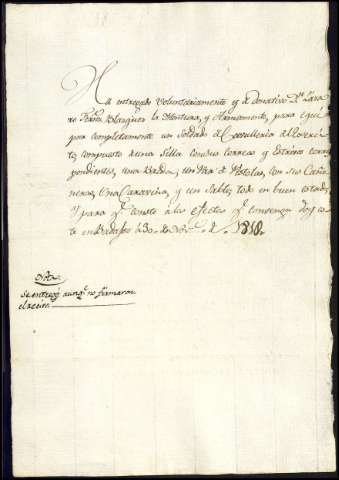 Ha entregado voluntariamente y de donativo Dn. Laza
ro Fernz. Blazquez la Montura, y Armamento, para equi
par completamente un Soldado de Cavalleria del Exerci
to, compuesto de una Silla con dos correas y Estrivos corres
pondientes, una Brida, un Par de Pistolas, con sus Caño
neras, Una Caravina, y un Sable, todo en buen estado,
y para q. conste á los efectos q. convenga, doy es
te en Badajoz á 30 de de 1818.
Nota
Se entregó aunq. no firmaron
el recivo